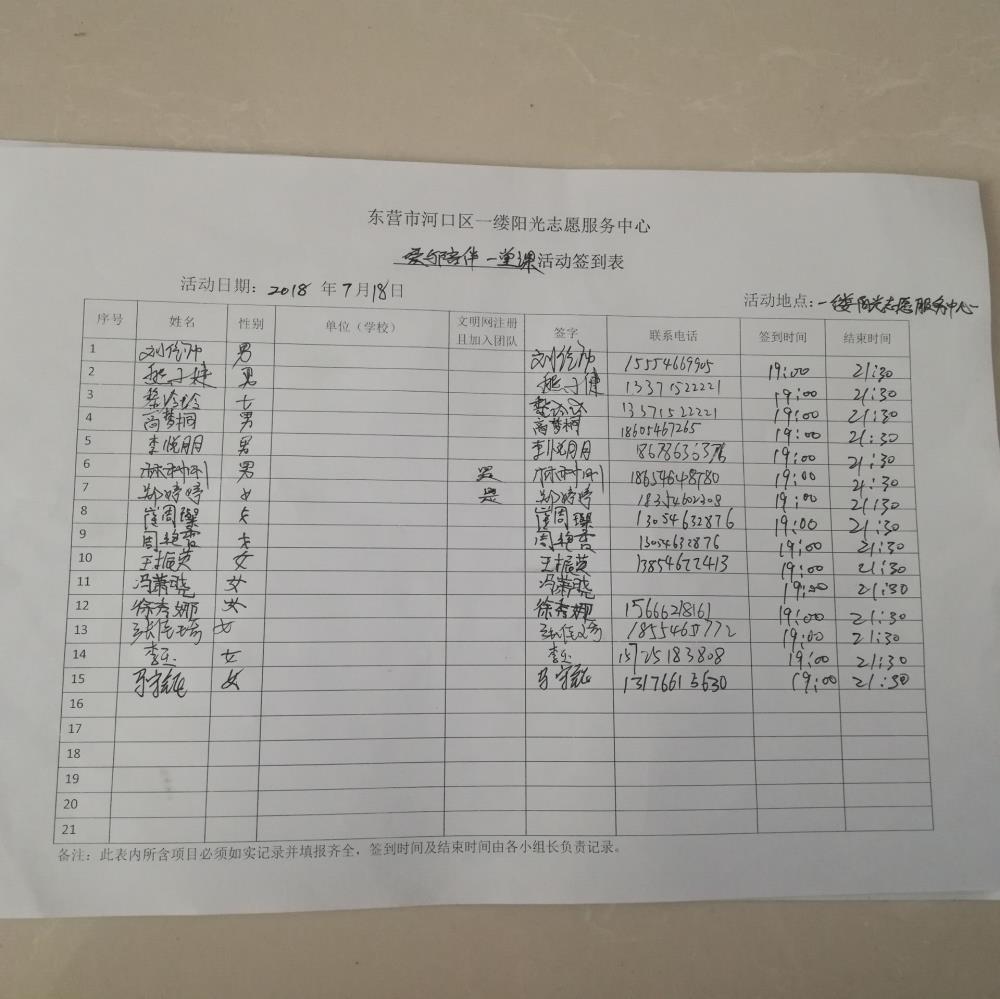 东营市河口区一缕阳光志愿服务中心
爱与陪伴一堂课活动签到表
活动日期：2018 年 7 月 18 日
活动地点：一缕阳光志愿服务中心
序号 姓名 性别 单位（学校） 文明网注册且加入团队 签字 联系电话 签到时间 结束时间
1 男 15554669905 19:00 21:30
2 男 13371522221 19:00 21:30
3 女 13371522221 19:00 21:30
4 高梦桐 男 高梦桐 18605467265 19:00 21:30
5 李悦朋 男 19:00 21:30
6 麻利刚 男 是 麻利刚 18654648780 19:00 21:30
7 郑婷婷 女 是 郑婷婷 18354602308 19:00 21:30
8 崔周璨 女 崔周璨 13054632876 19:00 21:30
9 周艳香 女 周艳香 13054632876 19:00 21:30
10 王振英 女 王振英 13854672413 19:00 21:30
11 冯萧晓 女 冯萧晓 19:00 21:30
12 徐秀娜 女 徐秀娜 1566628161 19:00 21:30
13 女 19:00 21:30
14 李玉 女 李玉 15725183808 19:00 21:30
15 女 19:00 21:30
16
17
18
19
20
21
备注：此表内所含项目必须如实记录并填报齐全，签到时间及结束时间由各小组长负责记录。